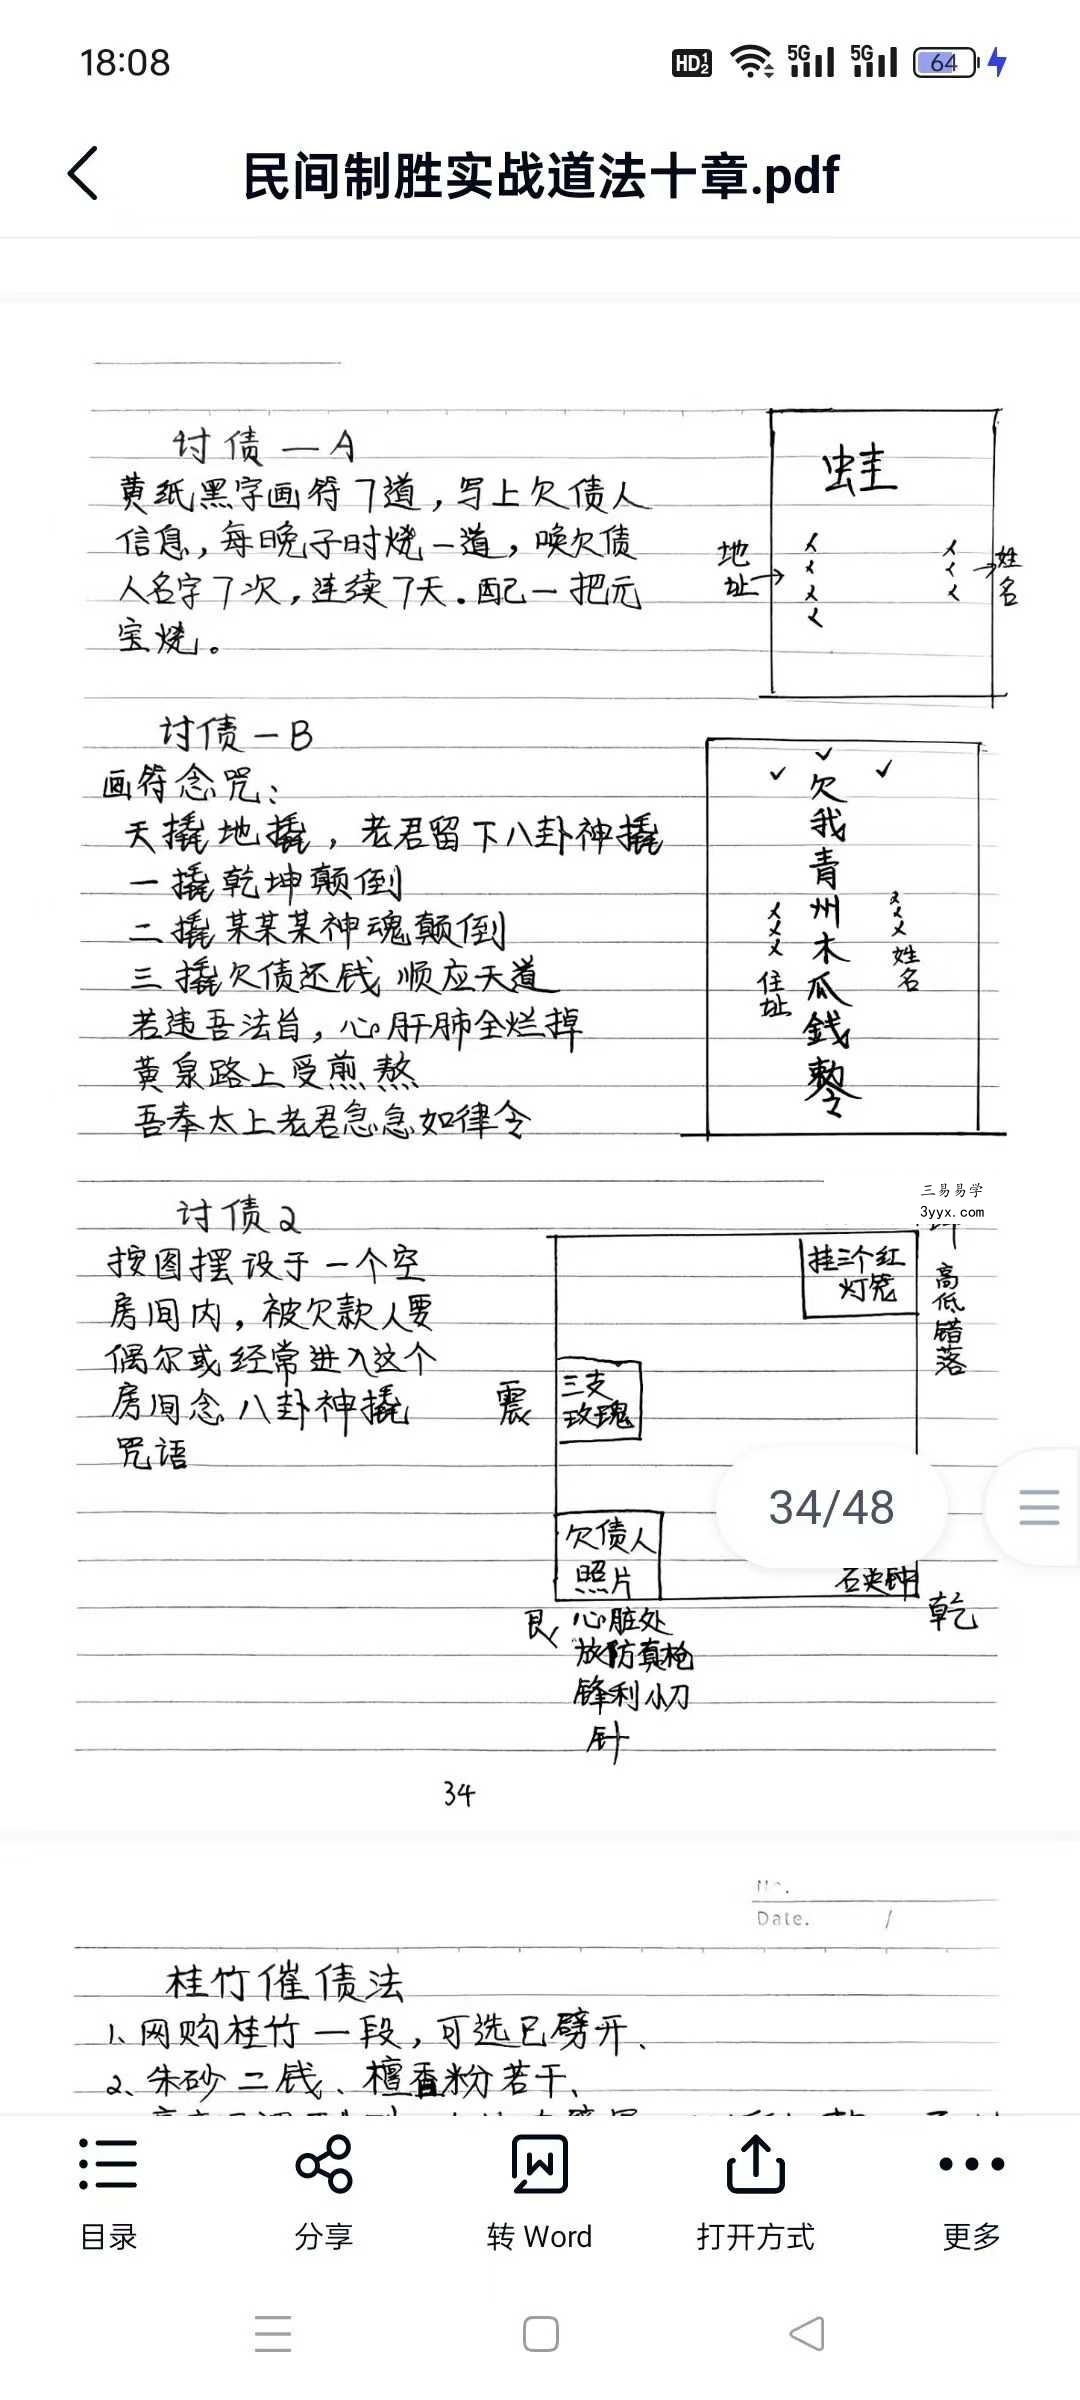 18:08
HD 1 2
5G
5G
64
民间制胜实战道法十章.pdf
讨债一A
黄纸黑字画符7道，写上欠债人
信息，每晚子时烧一道，唤欠债
人名字7次，连续7天。配一把元
宝烧。
蛙
地址→
→姓名
讨债一B
画符念咒：
天撬地撬，老君留下八卦神撬
一撬乾坤颠倒
二撬某某某神魂颠倒
三撬欠债还钱 顺应天道
若违吾法旨，心肝肺全烂掉
黄泉路上受煎熬
吾奉太上老君急急如律令
欠我青州木瓜錢敕令
住址
姓名
三易易学
3yyx.com
讨债2
按图摆设于一个空
房间内，被欠款人要
偶尔或经常进入这个
房间念八卦神撬
咒语
挂三个红
灯笼
高低错落
震
三支
玫瑰
34/48
欠债人
照片
石英钟
乾
艮
心脏处
放防真枪
锋利小刀
针
34
No.
Date. /
桂竹催债法
1、网购桂竹一段，可选已劈开、
2、朱砂二钱、檀香粉若干、
目录
分享
转 Word
打开方式
更多